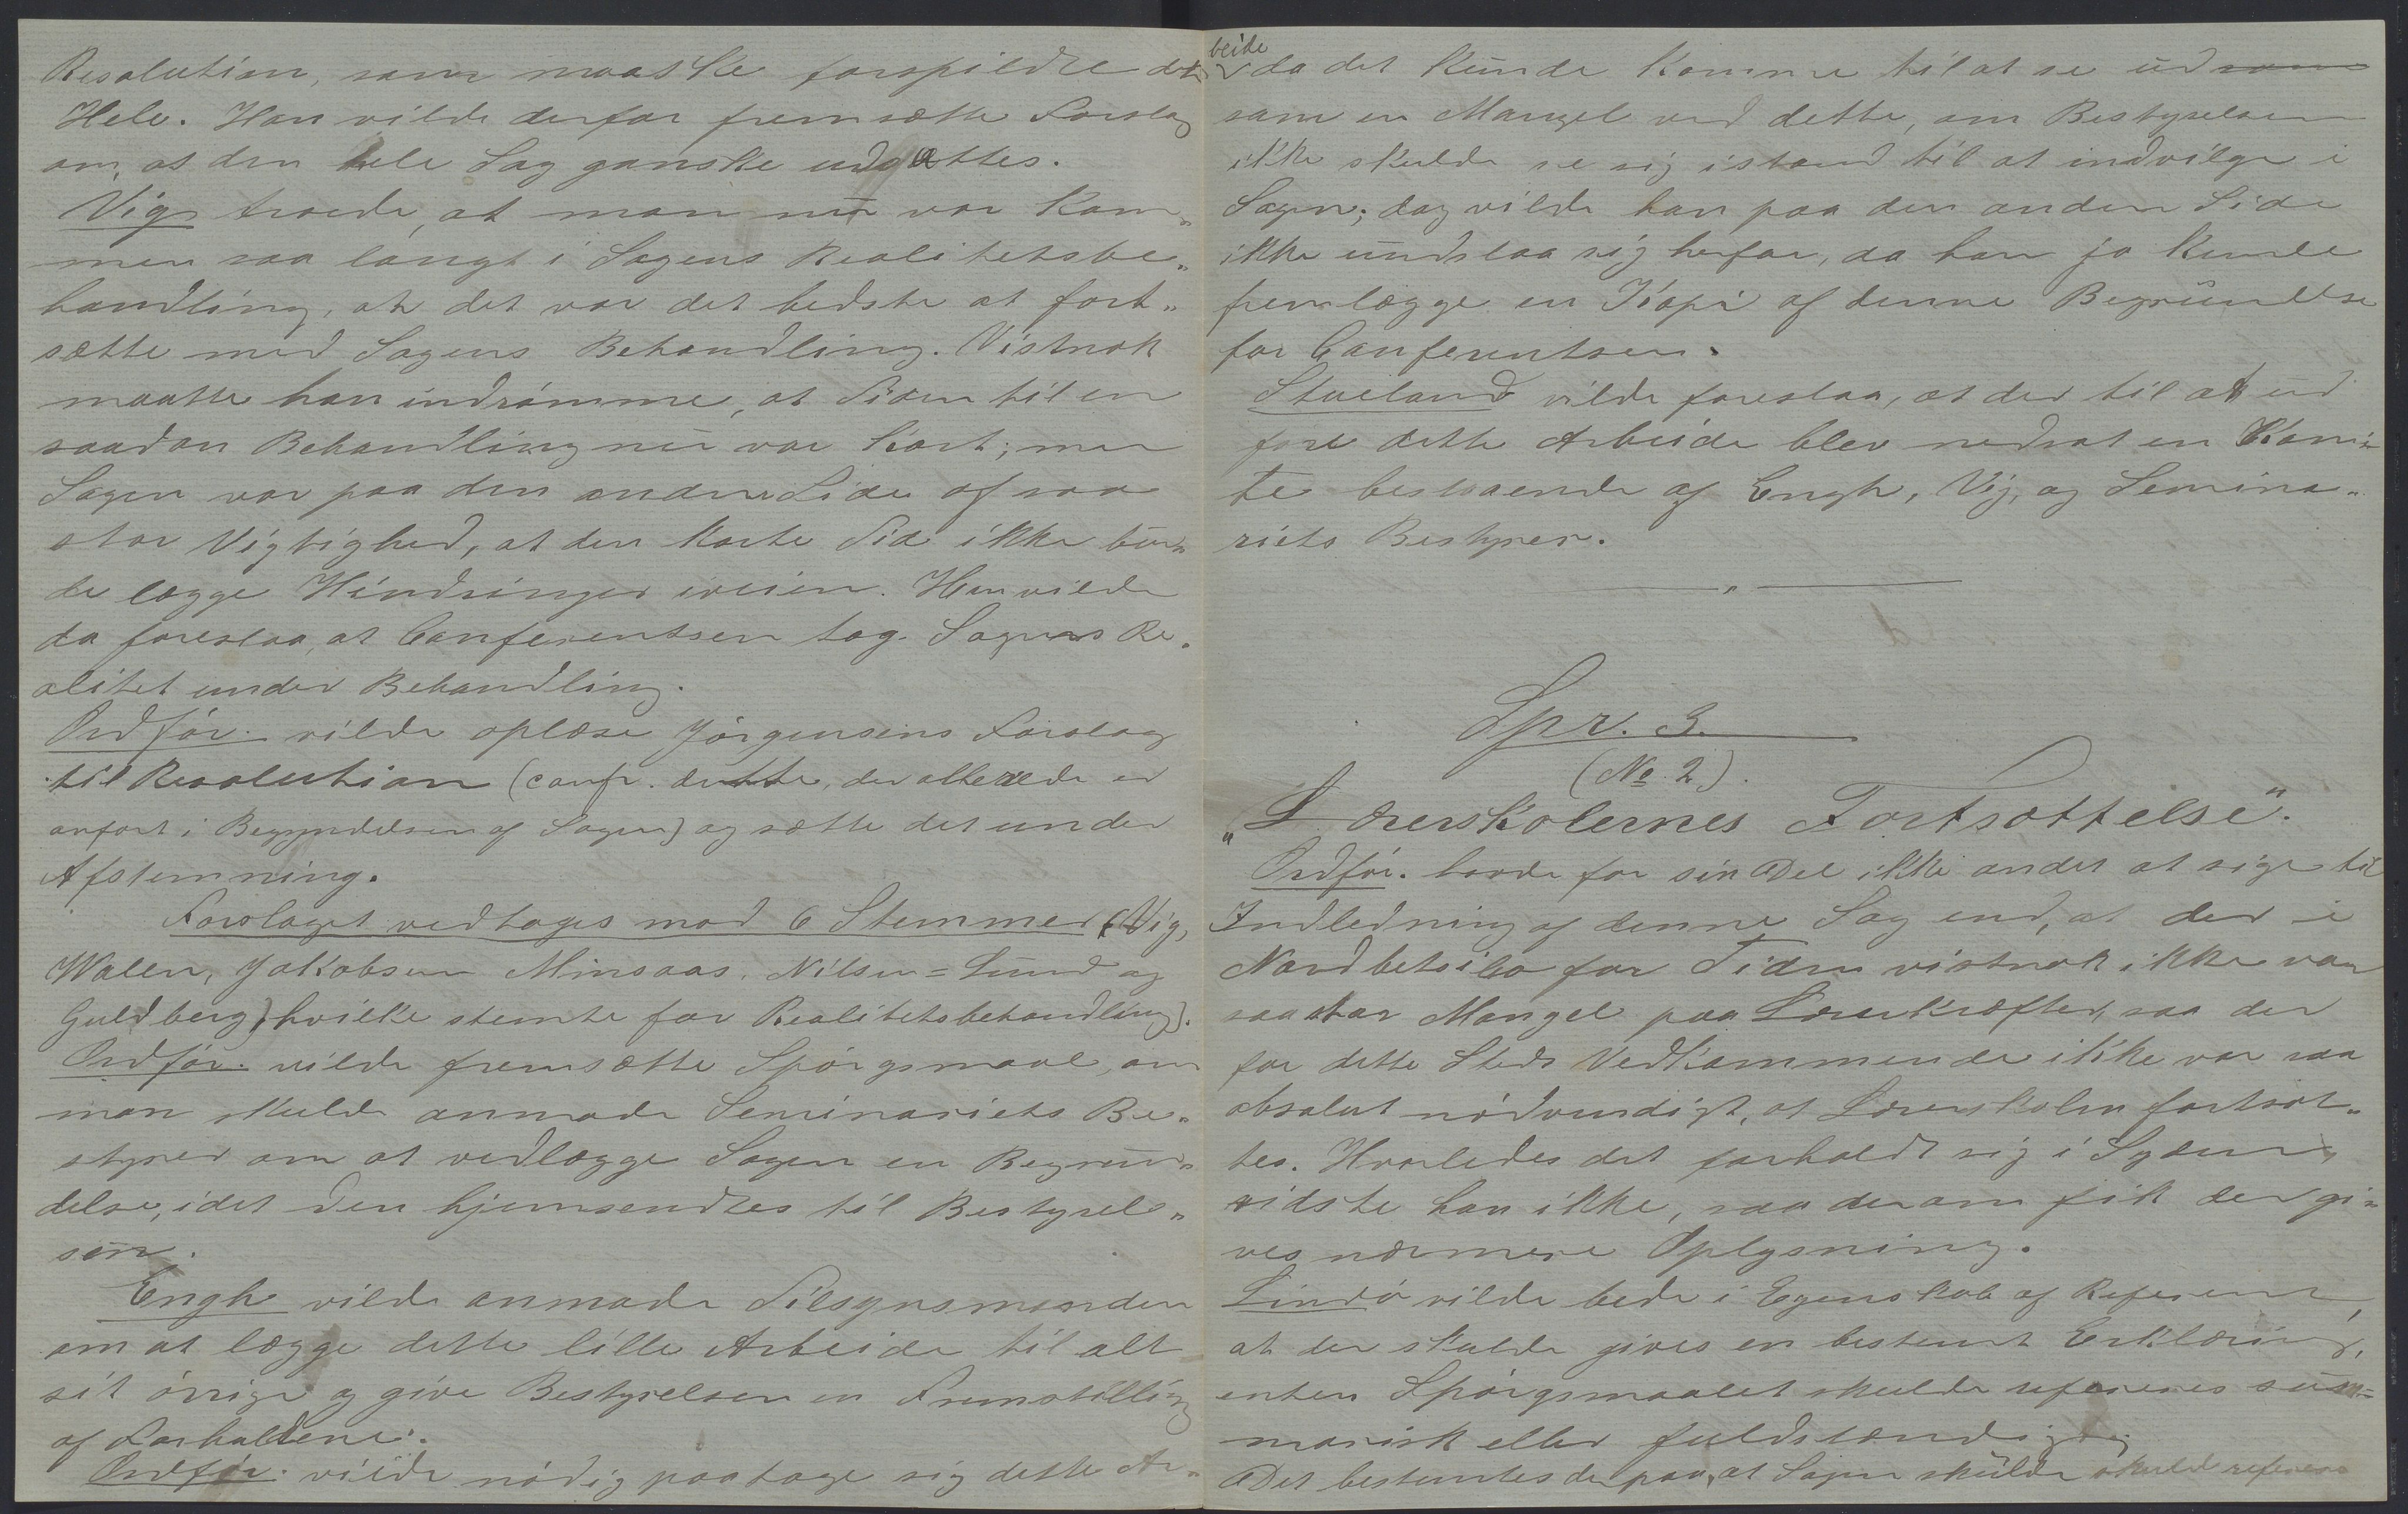 Resolution, som maaske forspildte det
Hele. Han vilde derfor fremsætte Forslag
om, at den hele Sag ganske udsattes.
Vig troede, at man nu var kom„
men saa langt i Sagens Realitetsbe„
handling, at det var det bedste at fort„
sætte med Sagens Behandling. Vistnok
maatte han indrømme, at Tiden til en
saadan Behandling nu var kort; men
Sagen var paa den anden Side af saa
stor Vigtighed, at den korte Tid ikke bur„
de lægge Hindringer iveien. Han vilde
da foreslaa, at Conferentsen tog Sagens Re„
alitet under Behandling.
Ordfør. vilde oplæse Jørgensens Forslag
til Resolution (confr. dette, der allerede er
anført i Begyndelsen af Sagen) og sætte det under
Afstemning.
Forslaget vedtoges mod 6 Stemmer (Vig,
Walen, Jakobsen Minsaas, Nilsen=Lund og
Guldberg), hvilke stemte for Realitetsbehandling).
Ordfør. vilde fremsætte Spørgsmaal, om
man skulde anmode Seminariets Be„
styrer om at vedlægge Sagen en Begrun„
delse, idet den hjemsendtes til Bestyrel„
sen.
Engh vilde anmode Tilsynsmanden
om at lægge dette lille Arbeide til alt
sit øvrige og give Bestyrelsen en Fremstilling
af Forholdene.
Ordfør. vilde nødig paatage sig dette Ar„
beide
da det kunde komme til at se ud som
som en Mangel ved dette, om Bestyrelsen
ikke skulde se sig istand til at indvilge i
Sagen; dog vilde han paa den anden Side
ikke undslaa sig herfor, da han jo kunde
fremlægge en Kopi af denne Begrundelse
for Conferentsen.
Stueland vilde foreslaa, at der til at ud
føre dette Arbeide blev nedsat en Komi„
te bestaaende af Engh, Vig, og Semina„
riets Bestyrer.
Spr. 3.
(No 2).
„Lærerskolernes Fortsættelse".
Ordfør. havde for sin Del ikke andet at sige til
Indledning af denne Sag end, at der i
Nordbetsileo for Tiden vistnok ikke var
saa stor Mangel paa Lærerkræfter, saa der
for dette Steds Vedkommende ikke var saa
absolut nødvendigt, at Lærerskolen fortsat„
tes. Hvorledes det forholdt sig i Syden,
vidste han ikke, saa derom fik der gi„
ves nærmere Oplysning.
Lindø vilde bede i Egenskab af Referent,
at der skulde gives en bestemt Erklæring,
enten Spørgsmaalet skulde refereres sum„
marisk eller fuldstændig
Det bestemtes derpaa, at Sagen skulde skulde refereres